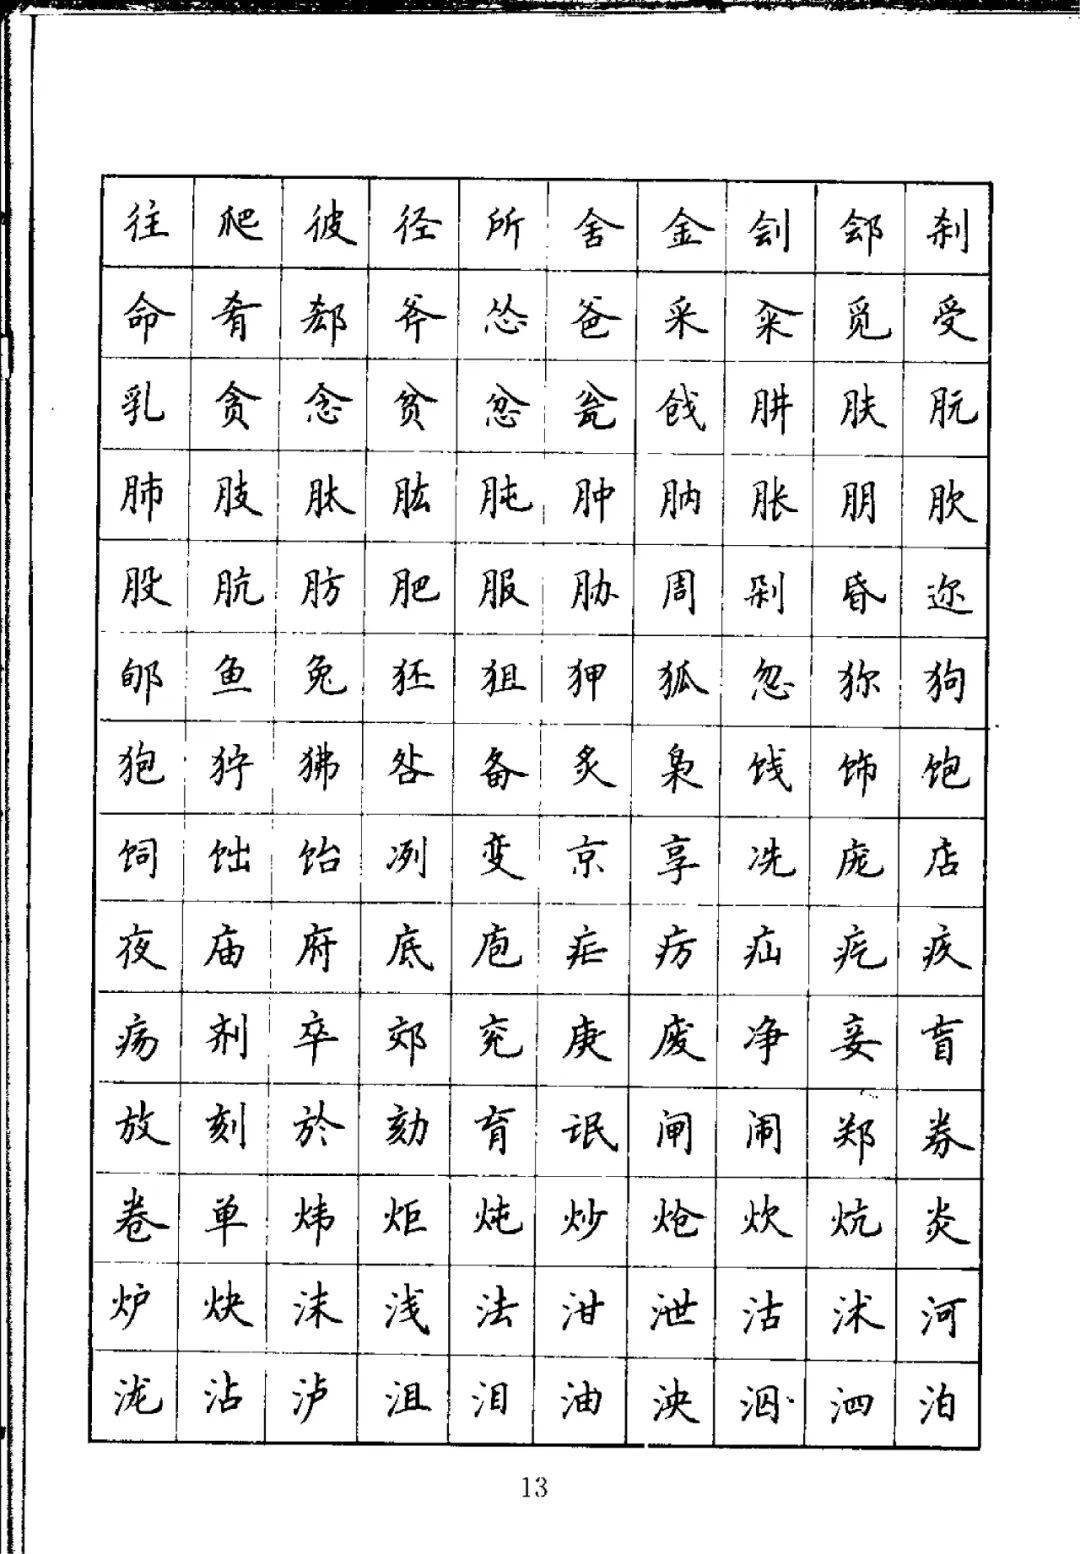 往 爬 彼 径 所 舍 金 刽 郐 刹
命 肴 郄 斧 怂 爸 采 籴 觅 受
乳 贪 念 贫 忿 瓮 戗 肼 肤 朊
肺 肢 肽 肱 肫 肿 肭 胀 朋 肷
股 肮 肪 肥 服 胁 周 剁 昏 迩
郇 鱼 兔 狉 狙 狎 狐 忽 狝 狗
狍 狞 狒 咎 备 炙 枭 饯 饰 饱
饲 饳 饴 冽 变 京 享 冼 庞 店
夜 庙 府 底 庖 疟 疠 疝 疙 疚
疡 剂 卒 郊 兖 庚 废 净 妾 盲
放 刻 於 劾 育 氓 闸 闹 郑 券
卷 单 炜 炬 炖 炒 炝 炊 炕 炎
炉 炔 沫 浅 法 泔 泄 沽 沭 河
泷 沾 泸 沮 泪 油 泱 泅 泗 泊
13